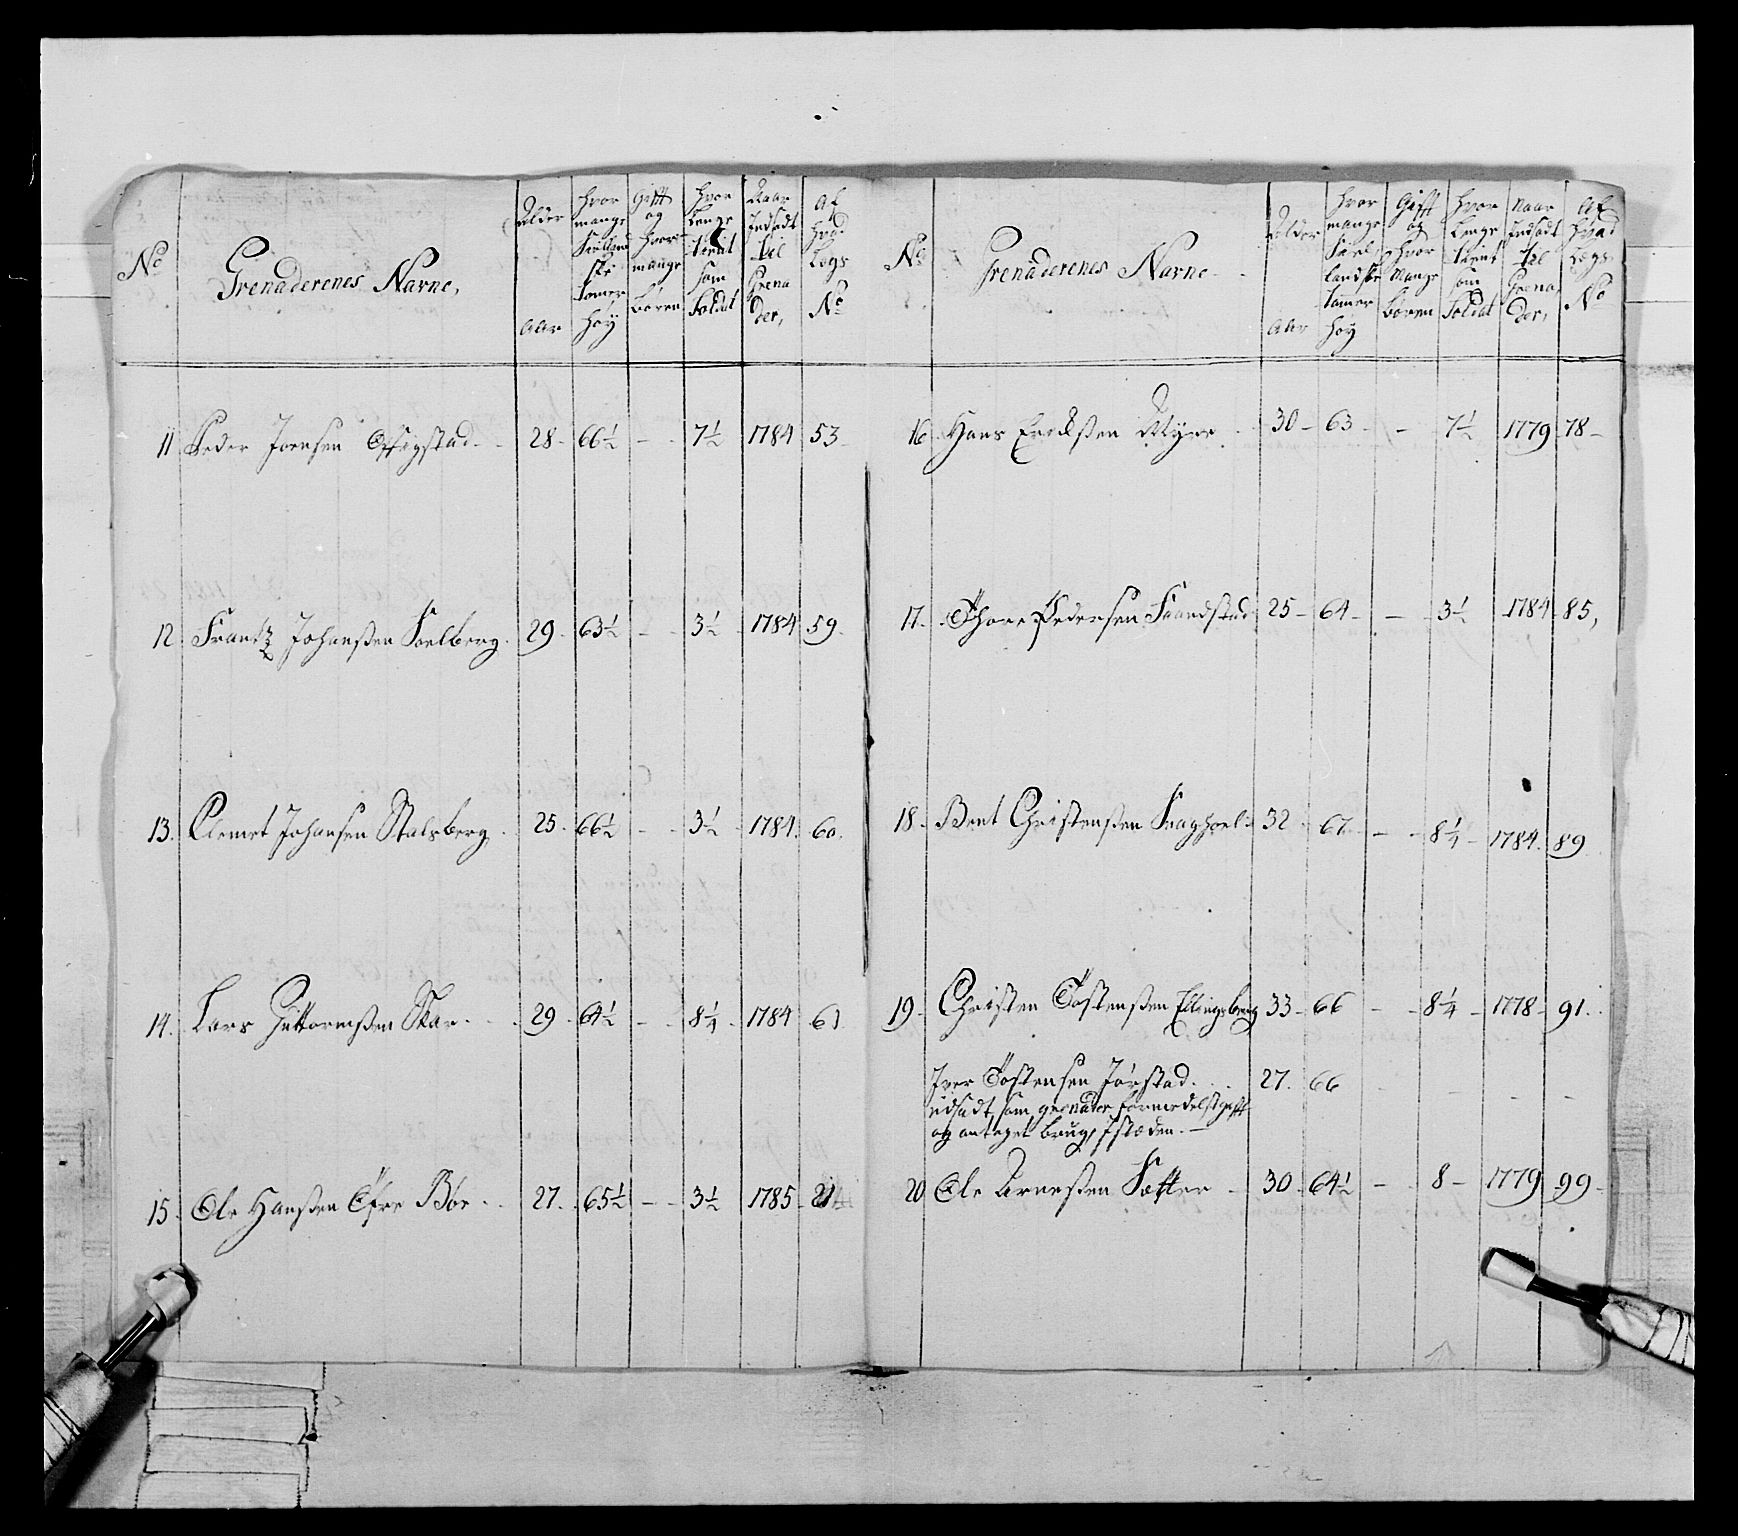 No
Grenaderenes Navne,
Alder
Aar
hvor
mange
Sielland
ske
tomer
høy
Gifft
og
hvor
mange
børen
hvor
lenge
tient
som
Soldat
Naar
Indsadt
til
Grena
der,
Af
hvad
Legs
No
11 Peder Joensen 28 - 66½ - 7½ 1784 53
12 Frantz Johanßen Kaelberg. 29 - 63½ - - 3½ 1784 59.
13. Clemet Johansen Stalsberg. 25 - 66½ - - 3½ 1784. 60.
14. Lars Guttormßen Skar. 29 - 64½ - - 8¼ 1784 61
15. Ole Hanßen Øfre Bøe 27. 65½ - - 3½ 1785. 21
No
Grenaderenes Navne
Alder
Aar
hvor
mange
Siel
landske
tomer
høy
Gifft
og
hvor
Mange
børen
hvor
lenge
tient
som
Soldat
Naar
Indsadt
til
Grena
der,
Af
hvad
Legs
No
16 Hans Erichßen Myre 30 - 63 - - 7½ 1779 78 -
17. Thore Pedersen Saandstad 25 - 64 - - 3½ 1784 85,
18. Bent Christenßen 32 67. - - 8¼ - 1784. 89
19. Christen Tostenßen Ellingsberg 33 - 66 - - 8¼ - 1778 - 91.
Iver Tostensen Jørstad. 27. 66 - - -
udsadt som grenader formedelst gifft
og antaget brug, I stæden. -
20 Ole Arneßen Sætter 30 - 64½ - - 8 - 1779 99 -